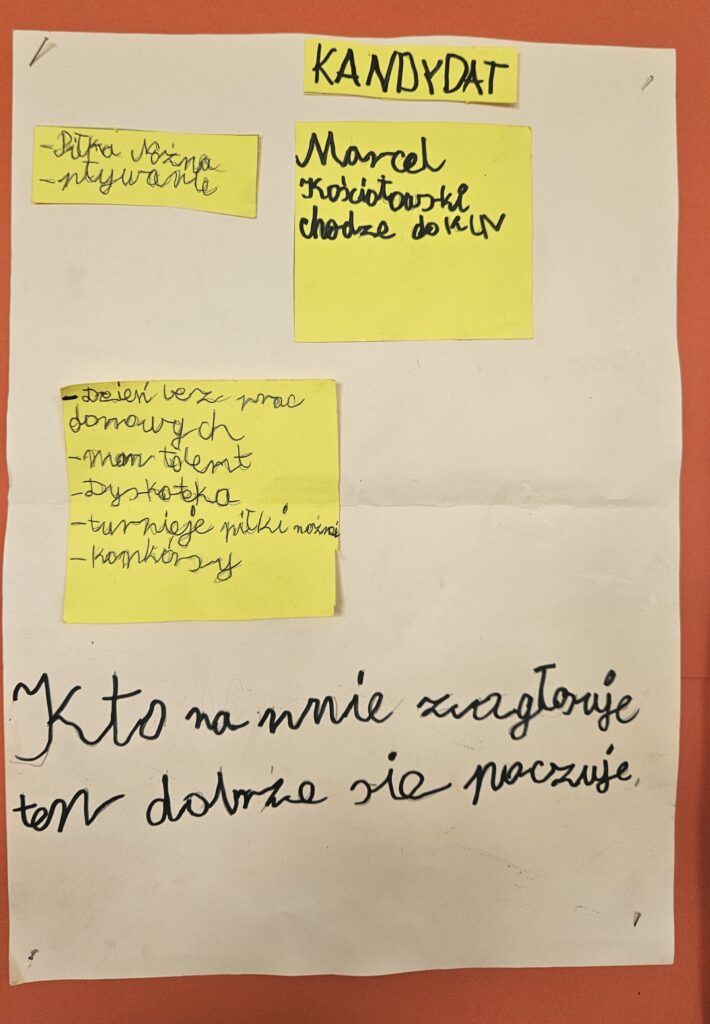 KANDYDAT
-Piłka Nożna
-pływanie
Marcel
Kościołowski
chodze do KLIV
-Dzień bez prac
domowych
-mam talent
-Dyskoteka
-turnieje piłki nożnej
-Konkórsy
Kto na mnie zagłosuje
ten dobrze się poczuje.